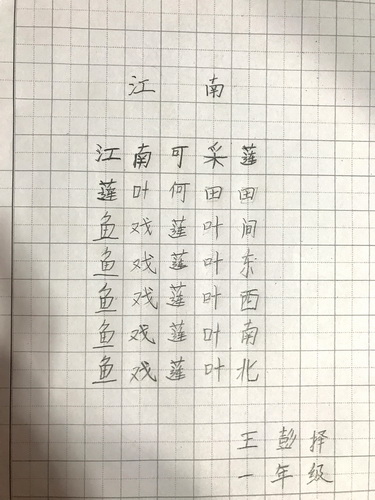 江南
江南可采莲
莲叶何田田
鱼戏莲叶间
鱼戏莲叶东
鱼戏莲叶西
鱼戏莲叶南
鱼戏莲叶北
王彭择
一年级